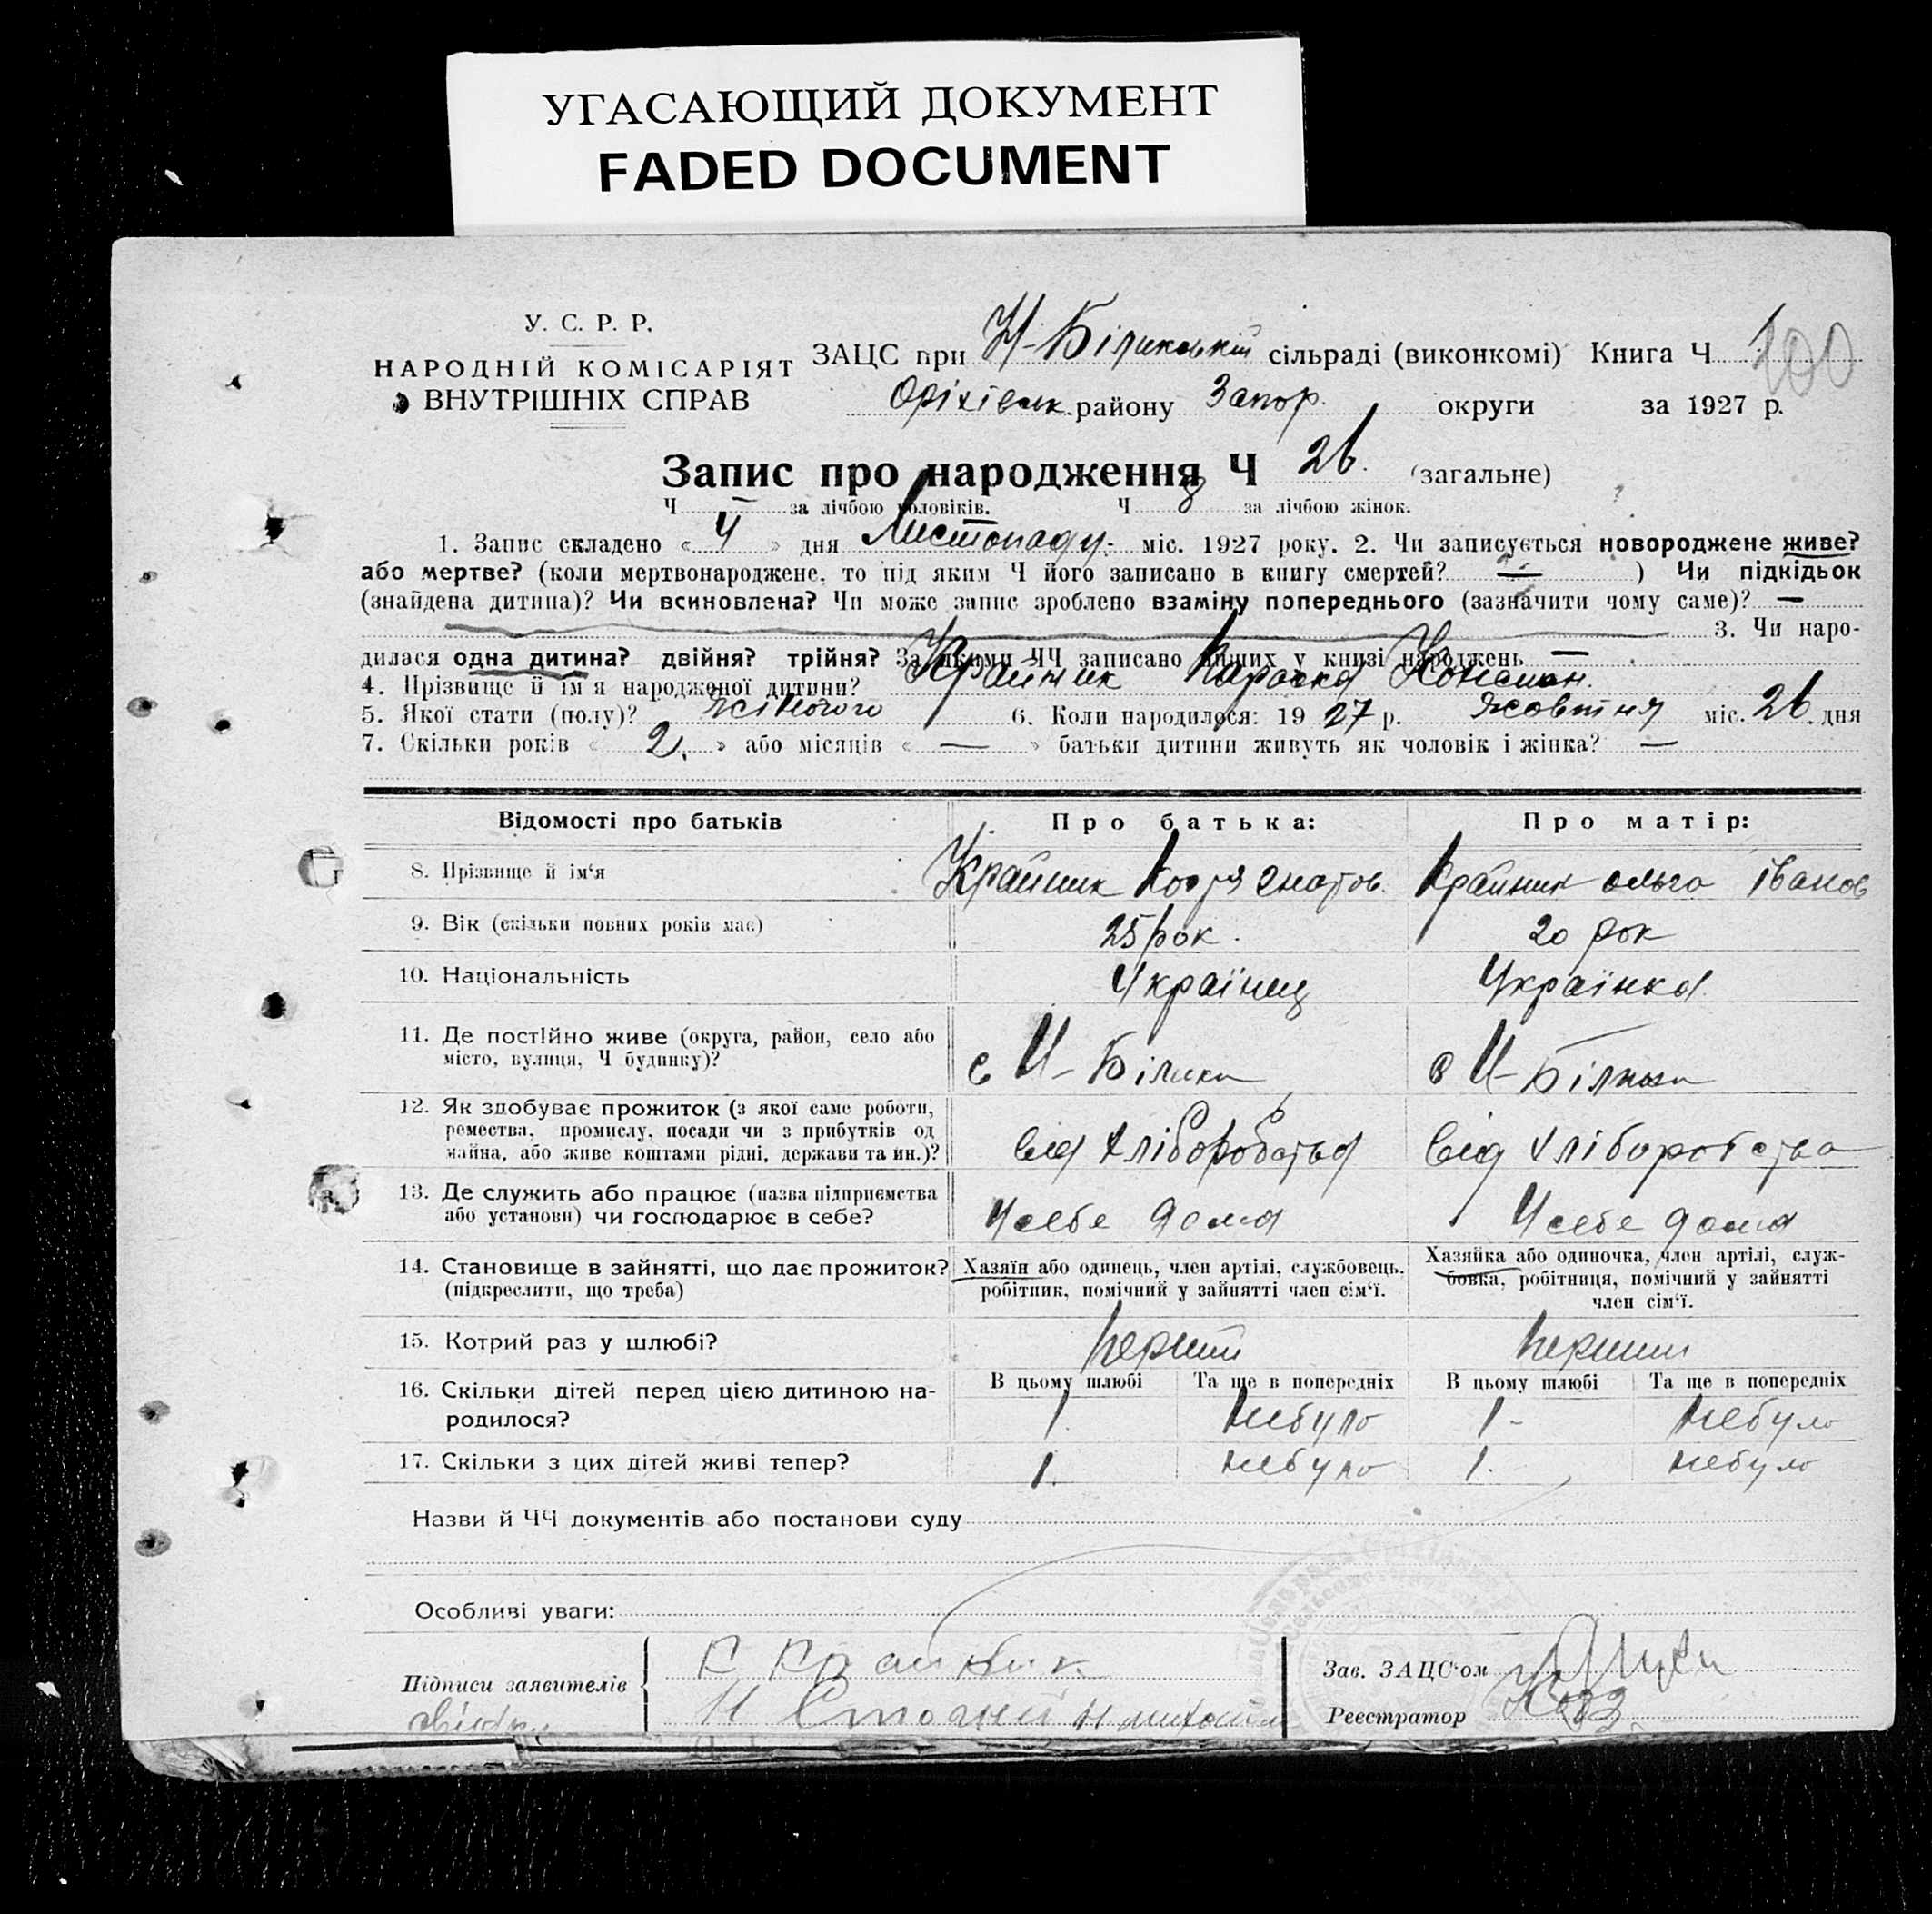 УГАСАЮЩИЙ ДОКУМЕНТ
FADED DOCUMENT
У. С. Р. Р.
НАРОДНІЙ КОМІСАРІЯТ
ВНУТРІШНІХ СПРАВ
ЗАЦС при Н-Біликовській сільраді (виконкомі) Книга Ч 1 100
Оріхівськ. району Запор. округи за 1927 р.
Запис про народження Ч 26. (загальне)
Ч — за лічбою чоловіків. Ч 8 за лічбою жінок.
1. Запис складено « 4 » дня Листопаду міс. 1927 року. 2. Чи записується новороджене живе?
або мертве? (коли мертвонароджене, то під яким Ч його записано в книгу смертей? — ) Чи підкідьок
(знайдена дитина)? Чи всиновлена? Чи може запис зроблено взаміну попереднього (зазначити чому саме)? —
3. Чи наро-
дилася одна дитина? двійня? трійня? За якими ЧЧ записано инших у книзі народжень —
4. Прізвище й ім'я народженої дитини? Крайник Параска Констан.
5. Якої стати (полу)? жіночого 6. Коли народилося: 1927 р. Жовтня міс. 26 дня
7. Скільки років « 2. » або місяців « — » батьки дитини живуть як чоловік і жінка? —
Відомості про батьків Про батька: Про матір:
8. Прізвище й ім'я Крайник Крайник ольга іванов
9. Вік (скільки повних років має) 25 рок. 20 рок
10. Національність Українец Українка
11. Де постійно живе (округа, район, село або
місто, вулиця, Ч будинку)? с Н-Білики с Н-Білики
12. Як здобуває прожиток (з якої саме роботи,
ремества, промислу, посади чи з прибутків од
майна, або живе коштами рідні, держави та ин.)? від хліборобства від хліборобства
13. Де служить або працює (назва підприємства
або установи) чи господарює в себе? У себе дома У себе дома
14. Становище в зайнятті, що дає прожиток?
(підкреслити, що треба)
Хазяїн або одинець, член артілі, службовець.
робітник, помічний у зайнятті член сім'ї.
Хазяйка або одиночка, член артілі, служ-
бовка, робітниця, помічний у зайнятті
член сім'ї.
15. Котрий раз у шлюбі? перший перший
В цьому шлюбі Та ще в попередніх В цьому шлюбі Та ще в попередніх
16. Скільки дітей перед цією дитиною на-
родилося? 1. небуло 1- небуло
17. Скільки з цих дітей живі тепер? 1. небуло 1. небуло
Назви й ЧЧ документів або постанови суду
Особливі уваги:
Підписи заявителів К Крайник
Зав. ЗАЦС'ом
Реєстратор